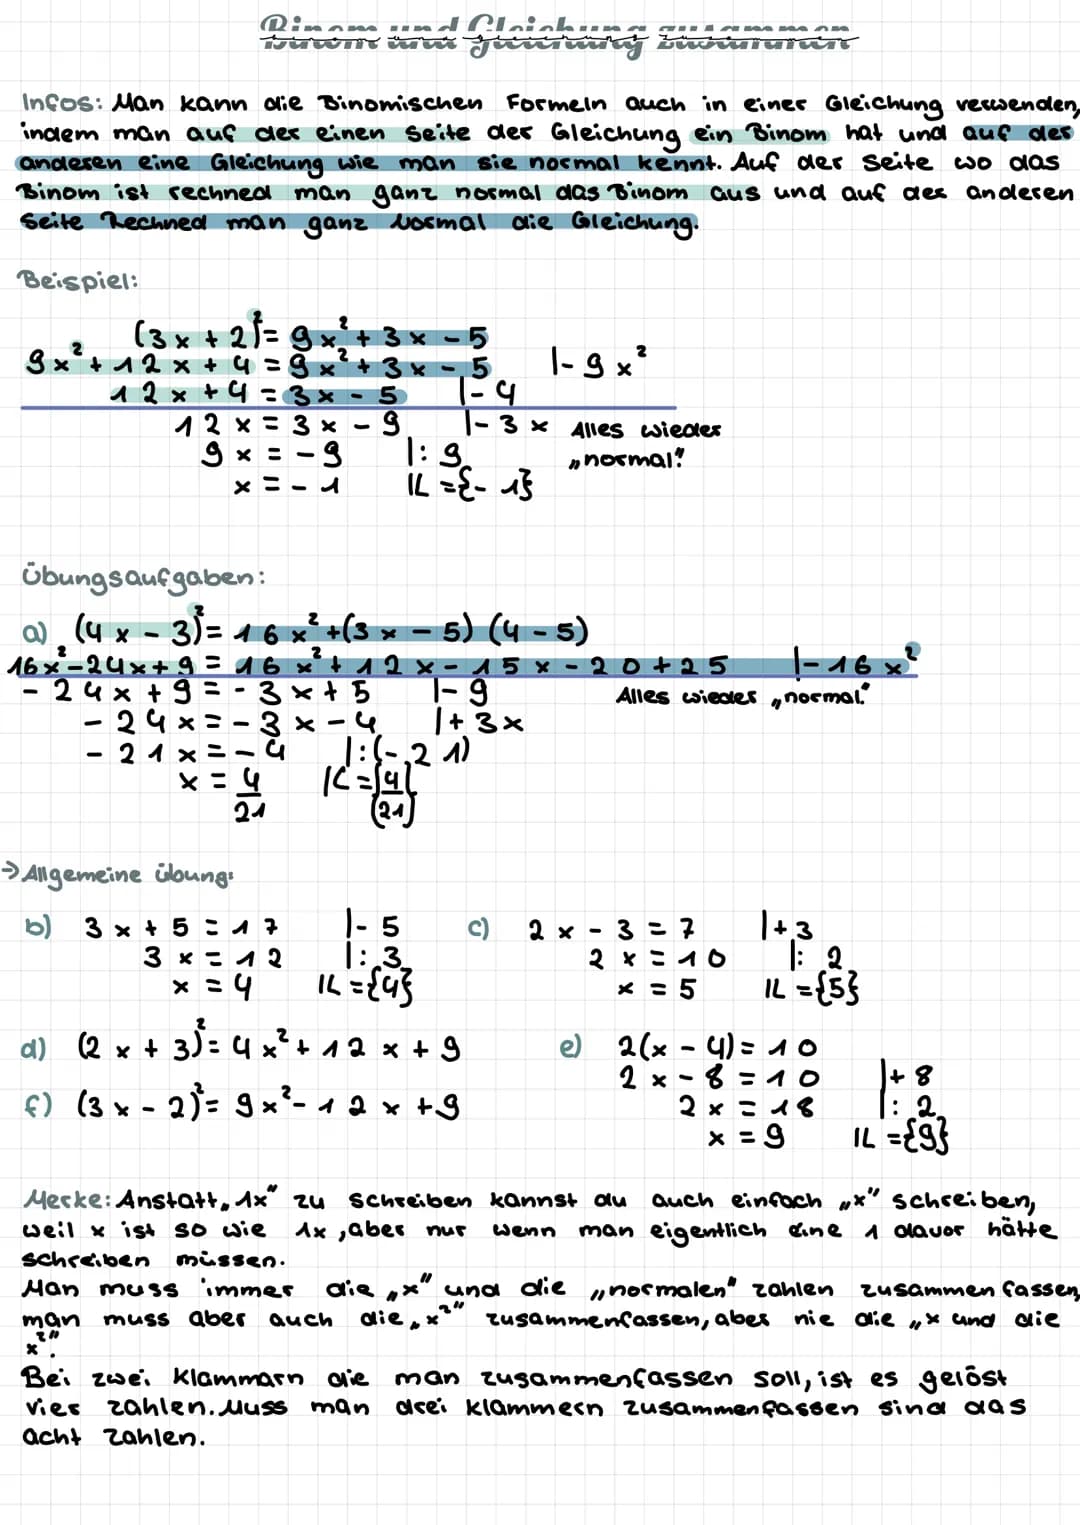 Binom und Gleichung zusammen
Infos: Man kann die Binomischen Formeln auch in einer Gleichung verwenden,
indem man auf der einen Seite der Gleichung ein Binom hat und auf der
anderen eine Gleichung wie man sie normal kennt. Auf der Seite wo das
Binom ist rechned man ganz normal das Binom aus und auf der anderen
Seite Rechned man ganz Normal die Gleichung.
Beispiel:
(3x + 2)² = 9x² + 3x - 5
9x² + 12x + 4 = 9x² + 3x - 5 |- 9x²
12x + 4 = 3x - 5 |- 4
12x = 3x - 9 |- 3x Alles wieder
9x = - 9 |: 9 „normal“
x = - 1 IL = {- 1}
Übungsaufgaben:
a) (4x - 3)² = 16x² + (3x - 5) (4 - 5)
16x² - 24x + 9 = 16x² + 12x - 15x - 20 + 25 |- 16x²
- 24x + 9 = - 3x + 5 |- 9 Alles wieder „normal“
- 24x = - 3x - 4 |+ 3x
- 21x = - 4 |: (- 21)
x = 4/21 IL = {4/21}
→ Allgemeine übung:
b) 3x + 5 = 17 |- 5 c) 2x - 3 = 7 |+ 3
3x = 12 |: 3 2x = 10 |: 2
x = 4 IL = {4} x = 5 IL = {5}
d) (2x + 3)² = 4x² + 12x + 9 e) 2(x - 4) = 10
2x - 8 = 10 |+ 8
f) (3x - 2)² = 9x² - 12x + 9 2x = 18 |: 2
x = 9 IL = {9}
Merke: Anstatt „1x“ zu schreiben kannst du auch einfach „x“ schreiben,
weil x ist so wie 1x, aber nur wenn man eigentlich eine 1 davor hätte
schreiben müssen.
Man muss immer die „x“ und die „normalen“ zahlen zusammen fassen,
man muss aber auch die „x²“ zusammenfassen, aber nie die „x und die
x²“.
Bei zwei Klammarn die man zusammenfassen soll, ist es gelöst
vier zahlen. Muss man drei klammern zusammenfassen sind das
acht zahlen.